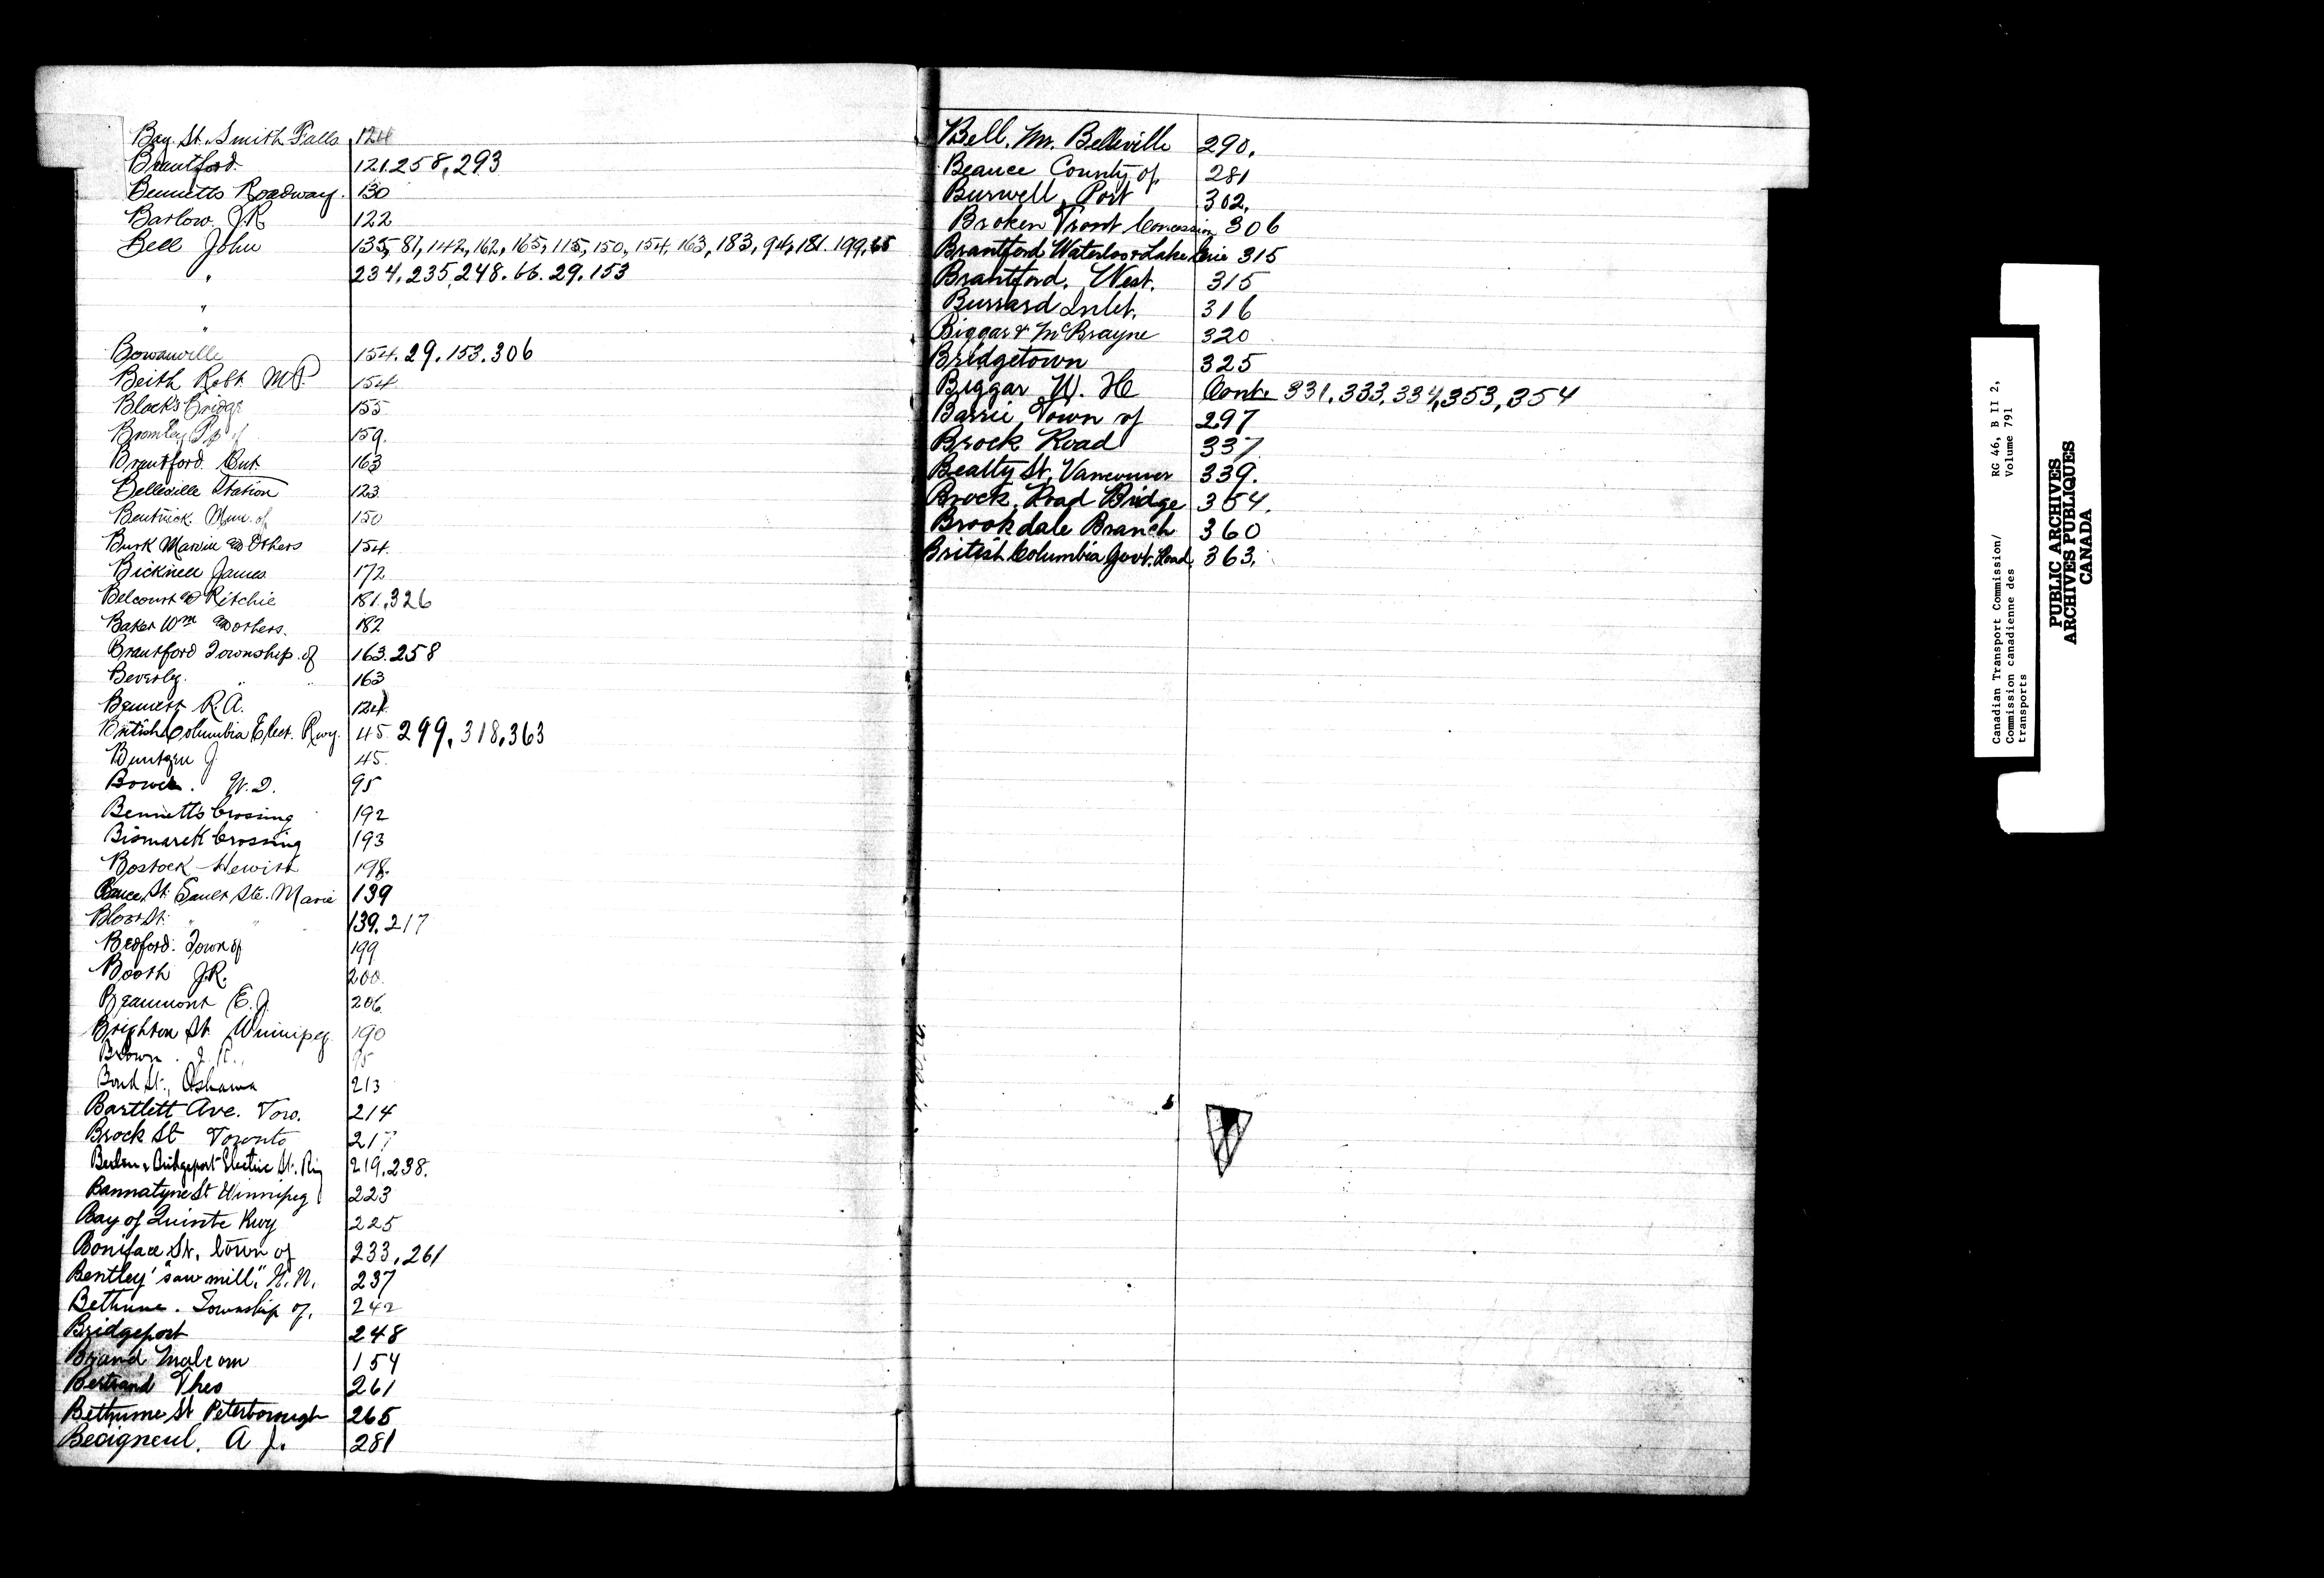 Bay. St. Smith Falls 124
Brantford. 121.258,293
Bennetts Roadway. 130
Barlow. J.R. 122
Bell John 135,81,142,162,165,115,150,154,163,183,94,181.199.65
" 234.235.248.66.29.153
"
"
Bowanville 154.29.153.306
Beith Robt. M.P. 154
Black's Bridge 155
Bromley Tp of 159.
Brantford. Ont. 163
Belleville Station 123
Bentnick. Mun. of 150
Burk Marvin & Others 154.
Bicknell James 172
Belcourt & Ritchie 181.,326
Baker Wm & others. 182
Brantford Township of 163.258
Beverley. " " 163
Bennett R.A. 124
British Columbia Elect. Rwy. 45.299,318,363
Buntzen J 45.
Bowen. W.D. 95
Bennetts Crossing 192
Bismarck Crossing 193
Bostock Hewitt 198.
Bruce St. Sault Ste. Marie 139
Bloor St. " " 139.217
Bedford. Town of 199
Booth J.R. 200.
Beaumont E.J. 206
Brighton St. Winnipeg. 190
Brown. 95
Bond St., Oshawa 213
Bartlett Ave. Toro. 214
Brock St Toronto 217
Berlin & Bridgeport Electric St. Ry 219.238.
Bannatyne St Winnipeg 223
Bay of Quinte Rwy 225
Boniface St. town of 233.261
Bentley "saw mill," N.N. 237
Bethune. Township of. 242
Bridgeport 248
Brand Malcom 154
Bertrand Theo 261
Bethune St Peterborough 265
Becigneul. A J. 281
Bell. Mr. Belleville 290.
Beauce County of 281
Burwell, Port 302.
Broken Front Concession 306
Brantford Waterloo & Lake Erie 315
Brantford. West. 315
Burrard Inlet. 316
Biggar & McBrayne 320
Bridgetown 325
Biggar W. H. Cont. 331.333.334,353,354
Barrie Town of 297
Brock Road 337
Beatty St, Vancouver 339.
Brock Road Bridge 354.
Brookdale Branch 360
British Columbia Govt. Road. 363.
Canadian Transport Commission/ RG 46, B II 2,
Commission canadienne des Volume 791
transports
PUBLIC ARCHIVES
ARCHIVES PUBLIQUES
CANADA